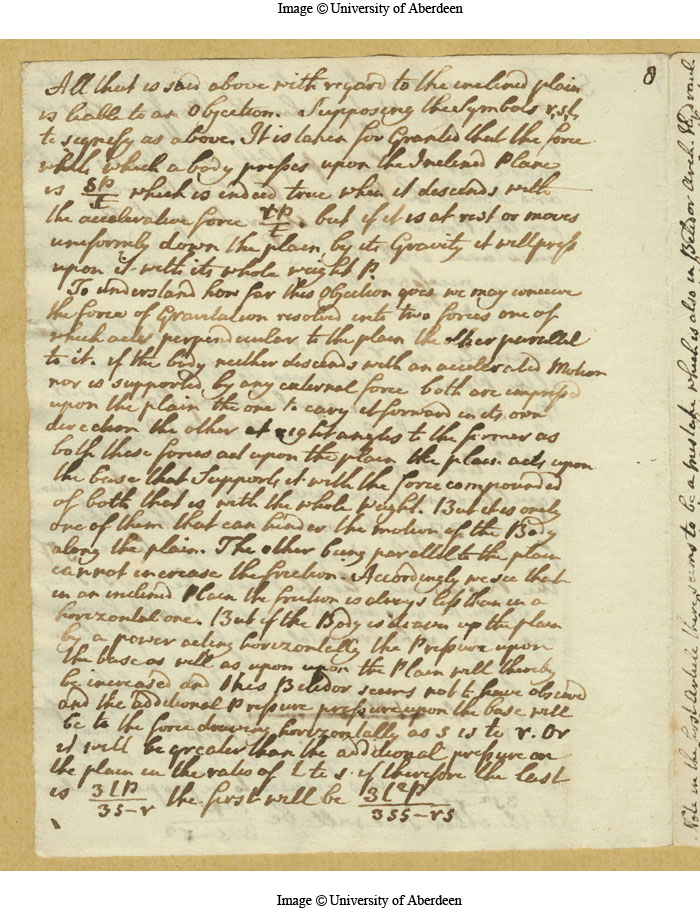 Image © University of Aberdeen
8
All that is said above with regard to the inclined plain
is liable to an Objection. Supposing the Symbols r, s, t,
to signefy as above. It is taken for Granted that the force
with which a body presses upon the Inclined Plane
is sp/t which is indeed true when it descends with
the accelerative force rp/t. but if it is at rest or moves
uniformly down the plain by its Gravity it will press
upon it with its whole weight P.
To understand how far this Objection goes we may conceive
the force of Gravitation resolved into two forces one of
which acts perpendicular to the plain the other parallel
to it. if the body neither descends with an accelerated Motion
nor is supported by any external force both are impress'd
upon the plain the one to cary it forward in its own
direction the other at right angles to the former as
both these forces act upon the plain the plain acts upon
the base that Supports it with the force compounded
of both that is with the whole weight. But it is only
one of them that can hinder the motion of the Body
along the plain. The other being parallel to the plain
cannot increase the friction. Accordingly we see that
in an inclined Plain the friction is always less than in a
horizontal one. But if the Body is drawn up the plain
by a power acting horizontally the Pressure upon
the base as well as upon upon the Plain will thereby
be increased and this Belidor seems not to have observed
and the additional Pressure pressure upon the base will
be to the force drawing horizontally as s is to r. Or
it will be greater than the additional pressure on
the plain in the ratio of t to s. if therefore the last
is 3tp/3s-r the first will be 3t²p/3ss-rs
Note in the first Article there seems to be a mistake which is also in Belidor Arch. Hydraul
Image © University of Aberdeen